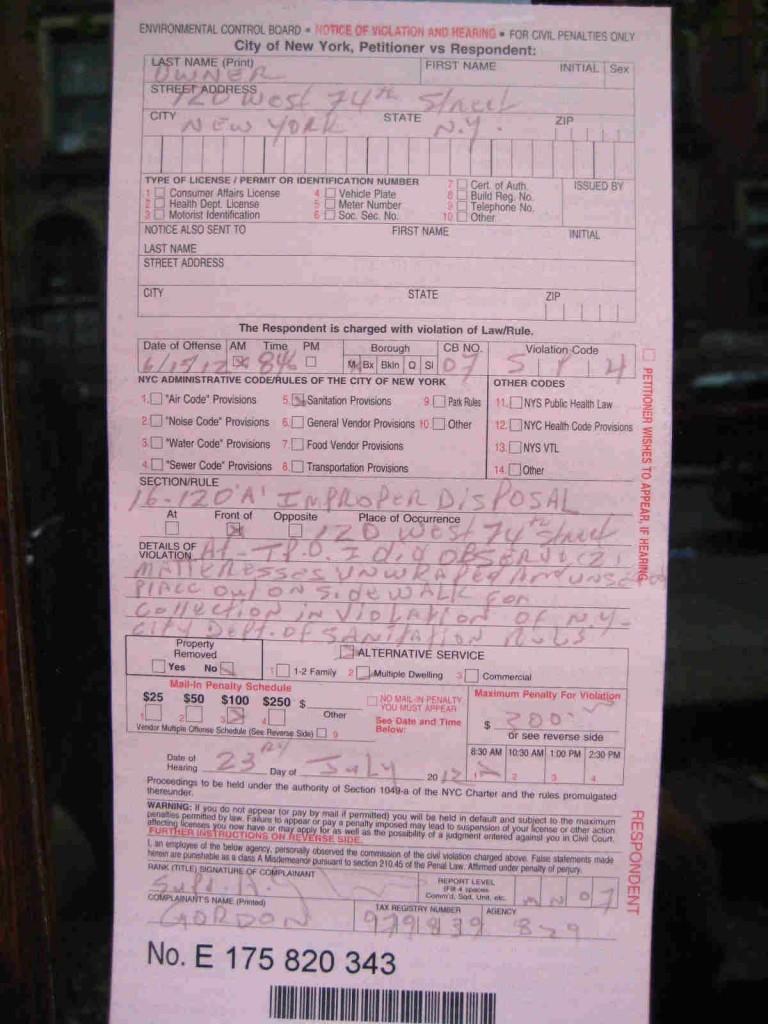 ENVIRONMENTAL CONTROL BOARD • NOTICE OF VIOLATION AND HEARING • FOR CIVIL PENALTIES ONLY
City of New York, Petitioner vs Respondent:
LAST NAME (Print) FIRST NAME INITIAL Sex
OWNER
STREET ADDRESS
120 West 74th Street
CITY STATE ZIP
NEW YORK N.Y.
TYPE OF LICENSE / PERMIT OR IDENTIFICATION NUMBER
1 Consumer Affairs License 4 Vehicle Plate 7 Cert. of Auth. ISSUED BY
2 Health Dept. License 5 Meter Number 8 Build Reg. No.
3 Motorist Identification 6 Soc. Sec. No. 9 Telephone No.
10 Other
NOTICE ALSO SENT TO FIRST NAME INITIAL
LAST NAME
STREET ADDRESS
CITY STATE ZIP
The Respondent is charged with violation of Law/Rule.
Date of Offense AM Time PM Borough CB NO. Violation Code
6/15/12 846 M Bx Bkln Q SI 07 S P 4
NYC ADMINISTRATIVE CODE/RULES OF THE CITY OF NEW YORK OTHER CODES
1. "Air Code" Provisions 5. Sanitation Provisions 9. Park Rules 11. NYS Public Health Law
2. "Noise Code" Provisions 6. General Vendor Provisions 10. Other 12. NYC Health Code Provisions
3. "Water Code" Provisions 7. Food Vendor Provisions 13. NYS VTL
4. "Sewer Code" Provisions 8. Transportation Provisions 14. Other
SECTION/RULE
16-120 'A' IMPROPER DISPOSAL
At Front of Opposite Place of Occurrence
120 West 74th Street
DETAILS OF VIOLATION At-T.P.O. I did OBSERVE (2)
MATTRESSES UNWRAPED And
PlACE out ON SideWALK FOR
Collection in Violation OF N.Y.
CITY Dept. OF SANitAtion Rules
Property Removed Yes No
ALTERNATIVE SERVICE
1 1-2 Family 2 Multiple Dwelling 3 Commercial
Mail-In Penalty Schedule
$25 $50 $100 $250 $ Other
1 2 3 4
Vendor Multiple Offense Schedule (See Reverse Side) 9
NO MAIL-IN PENALTY
YOU MUST APPEAR
See Date and Time
Below:
Maximum Penalty For Violation
$ 300
or see reverse side
8:30 AM 10:30 AM 1:00 PM 2:30 PM
1 2 3 4
Date of Hearing 23RD Day of July 2012
Proceedings to be held under the authority of Section 1049-a of the NYC Charter and the rules promulgated
thereunder.
WARNING: If you do not appear (or pay by mail if permitted) you will be held in default and subject to the maximum
penalties permitted by law. Failure to appear or pay a penalty imposed may lead to suspension of your license or other action
affecting licenses you now have or may apply for as well as the possibility of a judgment entered against you in Civil Court.
FURTHER INSTRUCTIONS ON REVERSE SIDE.
I, an employee of the below agency, personally observed the commission of the civil violation charged above. False statements made
herein are punishable as a class A Misdemeanor pursuant to section 210.45 of the Penal Law. Affirmed under penalty of perjury.
RANK (TITLE) SIGNATURE OF COMPLAINANT
REPORT LEVEL
(Fill 4 spaces
Comm'd, Sqd, Unit, etc. M N 0 7
COMPLAINANT'S NAME (Printed) TAX REGISTRY NUMBER AGENCY
GORDON 979839 829
No. E 175 820 343
PETITIONER WISHES TO APPEAR, IF HEARING
RESPONDENT